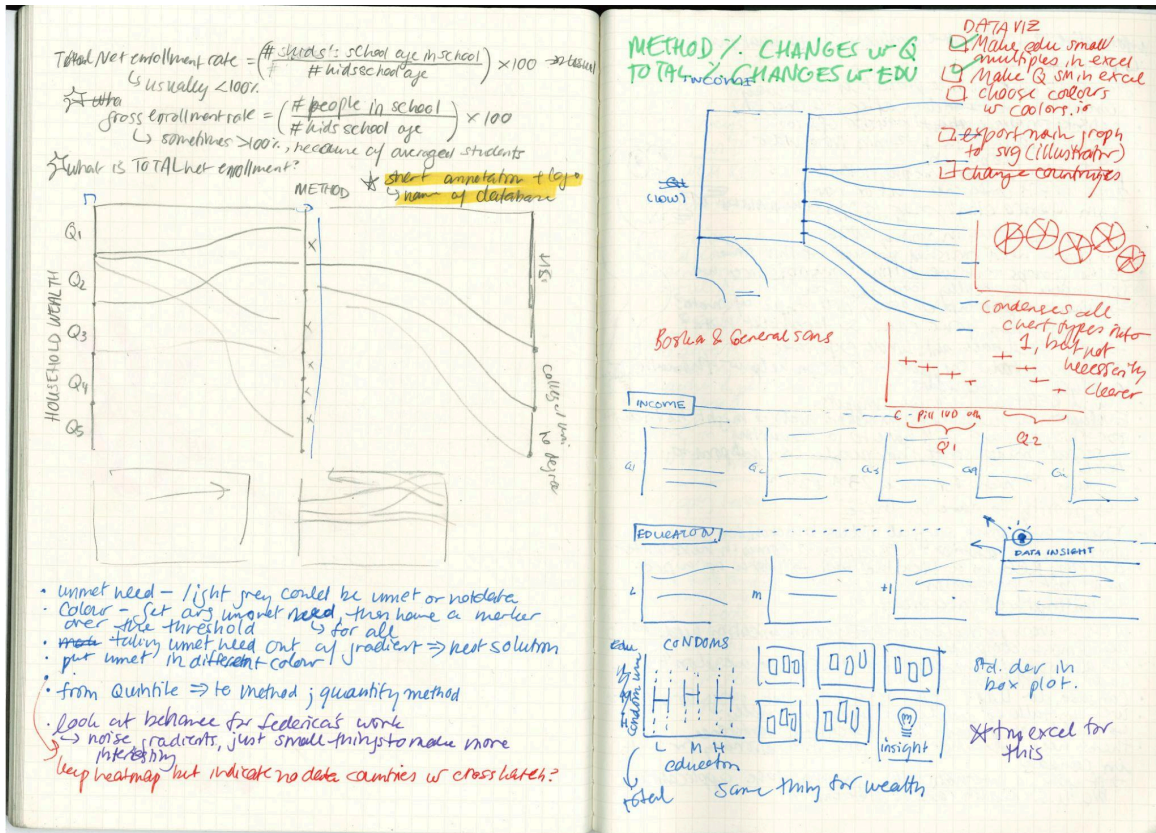 Total Net enrollment rate = (# kids's school age in school / # kids school age) × 100 ⇒
↳ usually <100%.
gross enrollment rate = (# people in school / # kids school age) × 100
↳ sometimes >100%, because of averaged students
☆ What is TOTAL net enrollment?
★ short annotation + logo
↳ name of database
METHOD
HOUSEHOLD WEALTH
Q1
Q2
Q3
Q4
Q5
x
x
x
x
x
HS.
college/uni
no degree
• unmet need – light grey could be unmet or no data
• colour – set avg unmet need, then have a marker
over the threshold ↳ for all
• taking unmet need out of gradient ⇒ best solution
• put unmet in different colour
• from Quintile ⇒ to method; quantify method
• look at behance for federica's work
↳ noise gradients, just small things to make more
interesting
keep heatmap but indicate no data countries w crosshatch?
METHOD % CHANGES w Q
TOTAL % CHANGES w EDU
INCOME
(LOW)
DATA VIZ
Make edu small
multiples in excel
Make Q sm in excel
choose colours
w coolors.io
export main graph
to svg (illustrator)
change countries
Condenses all
chart types into
1, but not
necessarily
clearer
& General sans
C - pill IUD oth
Q1
Q2
INCOME
Q1
Q2
Q3
Q4
EDUCATION
L
M
+1
DATA INSIGHT
CONDOMS
edu
condom
L M H
education
total
same thing for wealth
insight
std. dev in
box plot.
☆ try excel for
this